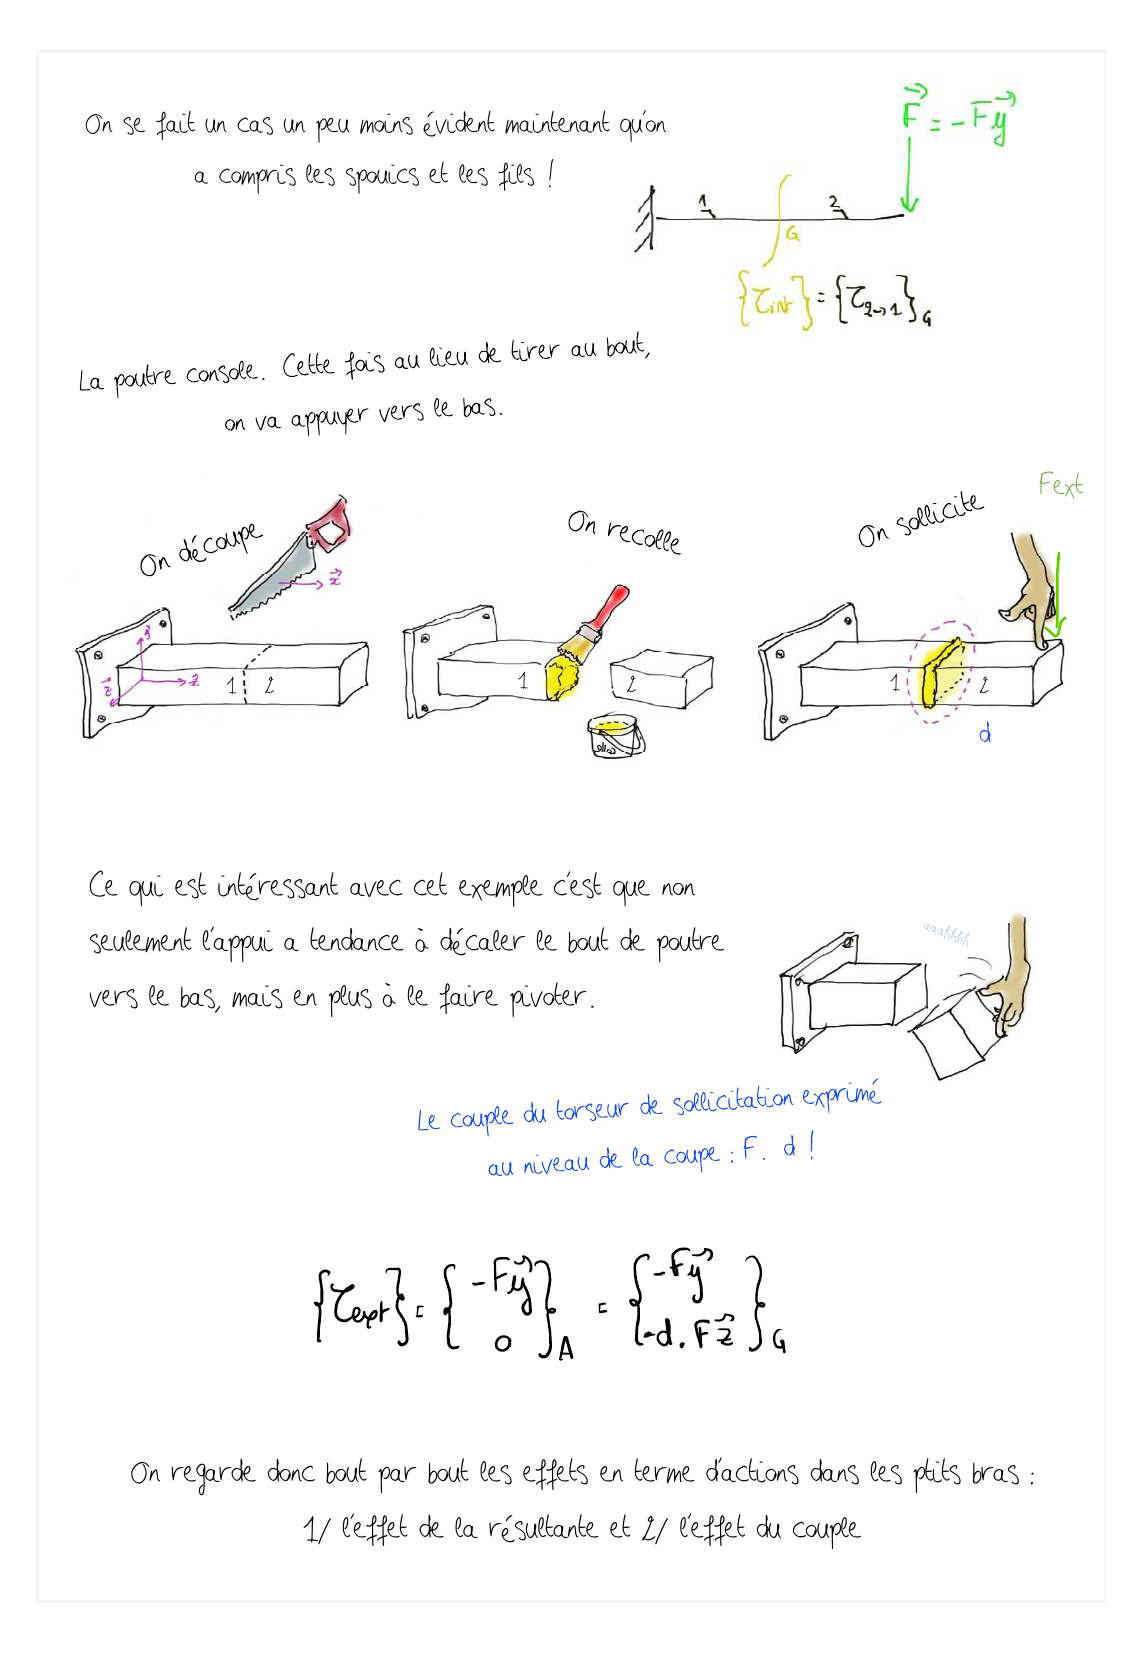 On se fait un cas un peu moins évident maintenant qu'on
a compris les spouics et les fils !
F⃗ = -Fy⃗
1 2
G
{τint} = {τ2→1}G
La poutre console. Cette fois au lieu de tirer au bout,
on va appuyer vers le bas.
Fext
On découpe
On recolle
On sollicite
x⃗
y⃗
z⃗ x⃗
1 2
1 2
colle
1 2
d
Ce qui est intéressant avec cet exemple c'est que non
seulement l'appui a tendance à décaler le bout de poutre
vers le bas, mais en plus à le faire pivoter.
aaahhhh
Le couple du torseur de sollicitation exprimé
au niveau de la coupe : F. d !
{τext} = {-Fy⃗ 0}A = {-Fy⃗ -d.Fz⃗}G
On regarde donc bout par bout les effets en terme d'actions dans les ptits bras :
1/ l'effet de la résultante et 2/ l'effet du couple